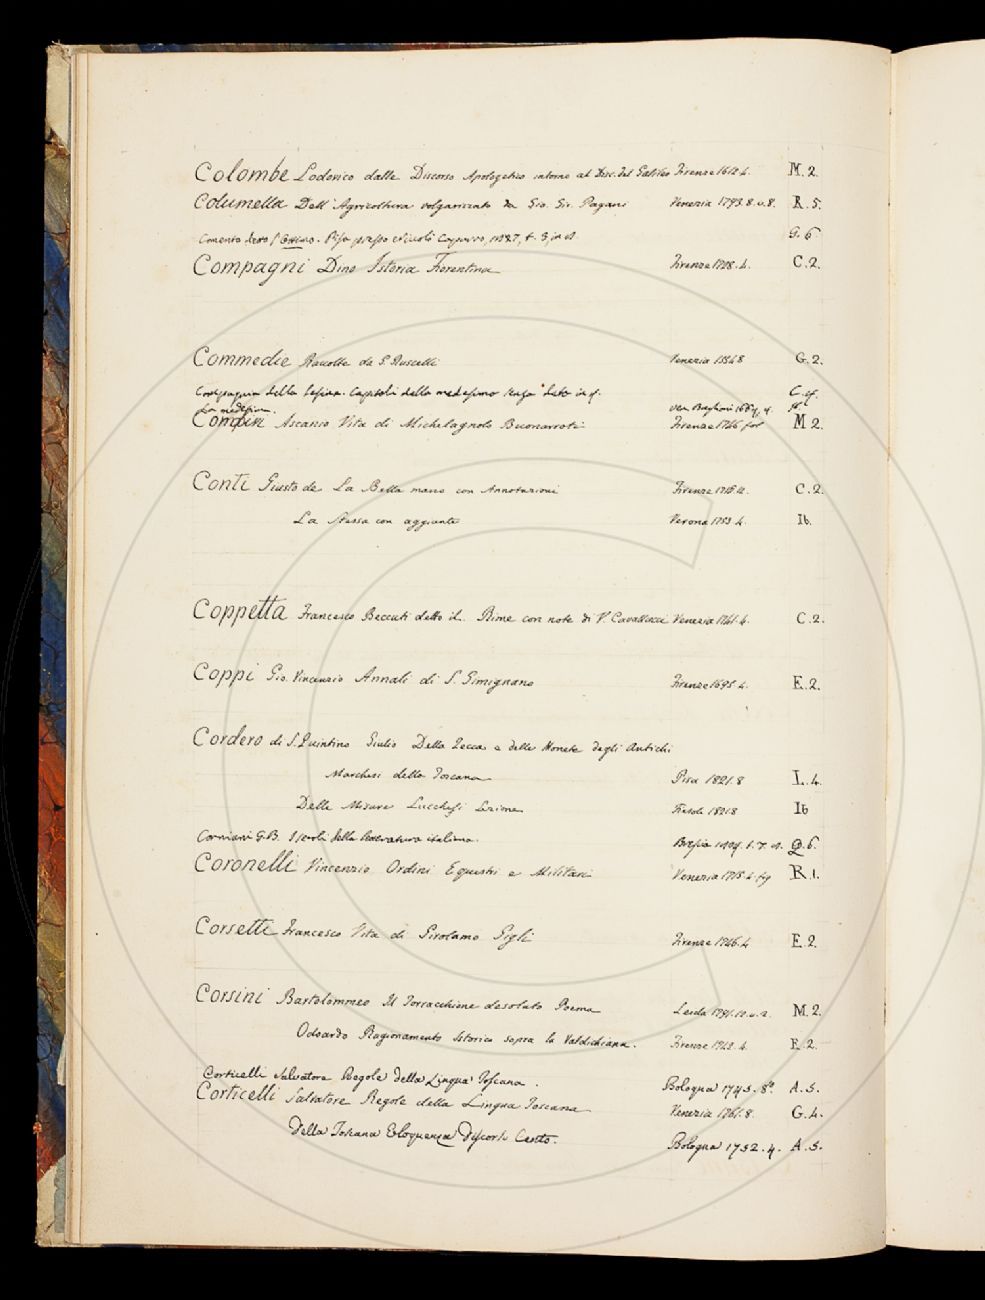 Colombe Lodovico dalle Discorso Apologetico intorno al Disc. del Galileo Firenze 1612.4. M.2.
Columella Dell'Agricoltura volgarizzato da Gio. Gir. Pagani Venezia 1793.8.v.8. R.5.
Comento sopra Pisa presso Niccolò Capurro, t. 3, in G.6
Compagni Dino Istoria Fiorentina Firenze 1728.4. C.2.
Commedie Raccolte da G. Ruscelli Venezia 1554.8 G.2.
Compagnia della Lesina. Capitoli della medesima C.
la medesima. Ven. Baglioni
Condivi Ascanio Vita di Michelagnolo Buonarroti Firenze 1746 fol M 2.
Conti Giusto de La Bella mano con Annotazioni Firenze 1715.12. C.2.
La Stessa con aggiunte Verona 1753.4. Ib.
Coppetta Francesco Beccuti detto il. Rime con note di V. Cavallucci Venezia 1751.4. C.2.
Coppi Gio. Vincenzio Annali di S. Gimignano Firenze 1695.4. E.2.
Cordero di S. Quintino Giulio Della Zecca e delle Monete degli Antichi
Marchesi della Toscana Pisa 1821.8 L.4.
Delle Misure Lucchesi Lezione 1821.8 Ib
Corniani G.B. I secoli della letteratura italiana. Brescia Q.6.
Coronelli Vincenzio Ordini Equestri e Militari Venezia 1715.4.fig R.1.
Corsetti Francesco Vita di Girolamo Gigli Firenze 1746.4 E.2.
Corsini Bartolommeo Il Torracchione desolato Poema Leida 1791.12.v.2. M.2.
Odoardo Ragionamento Istorico sopra la Valdichiana. Firenze 1742.4. E.2.
Corticelli Salvatore Regole della Lingua Toscana. Bologna 1745.8º. A.5.
Corticelli Salvatore Regole della Lingua Toscana Venezia 1761.8. G.4.
Della Toscana Eloquenza Discorsi Cento. Bologna 1752.4. A.5.